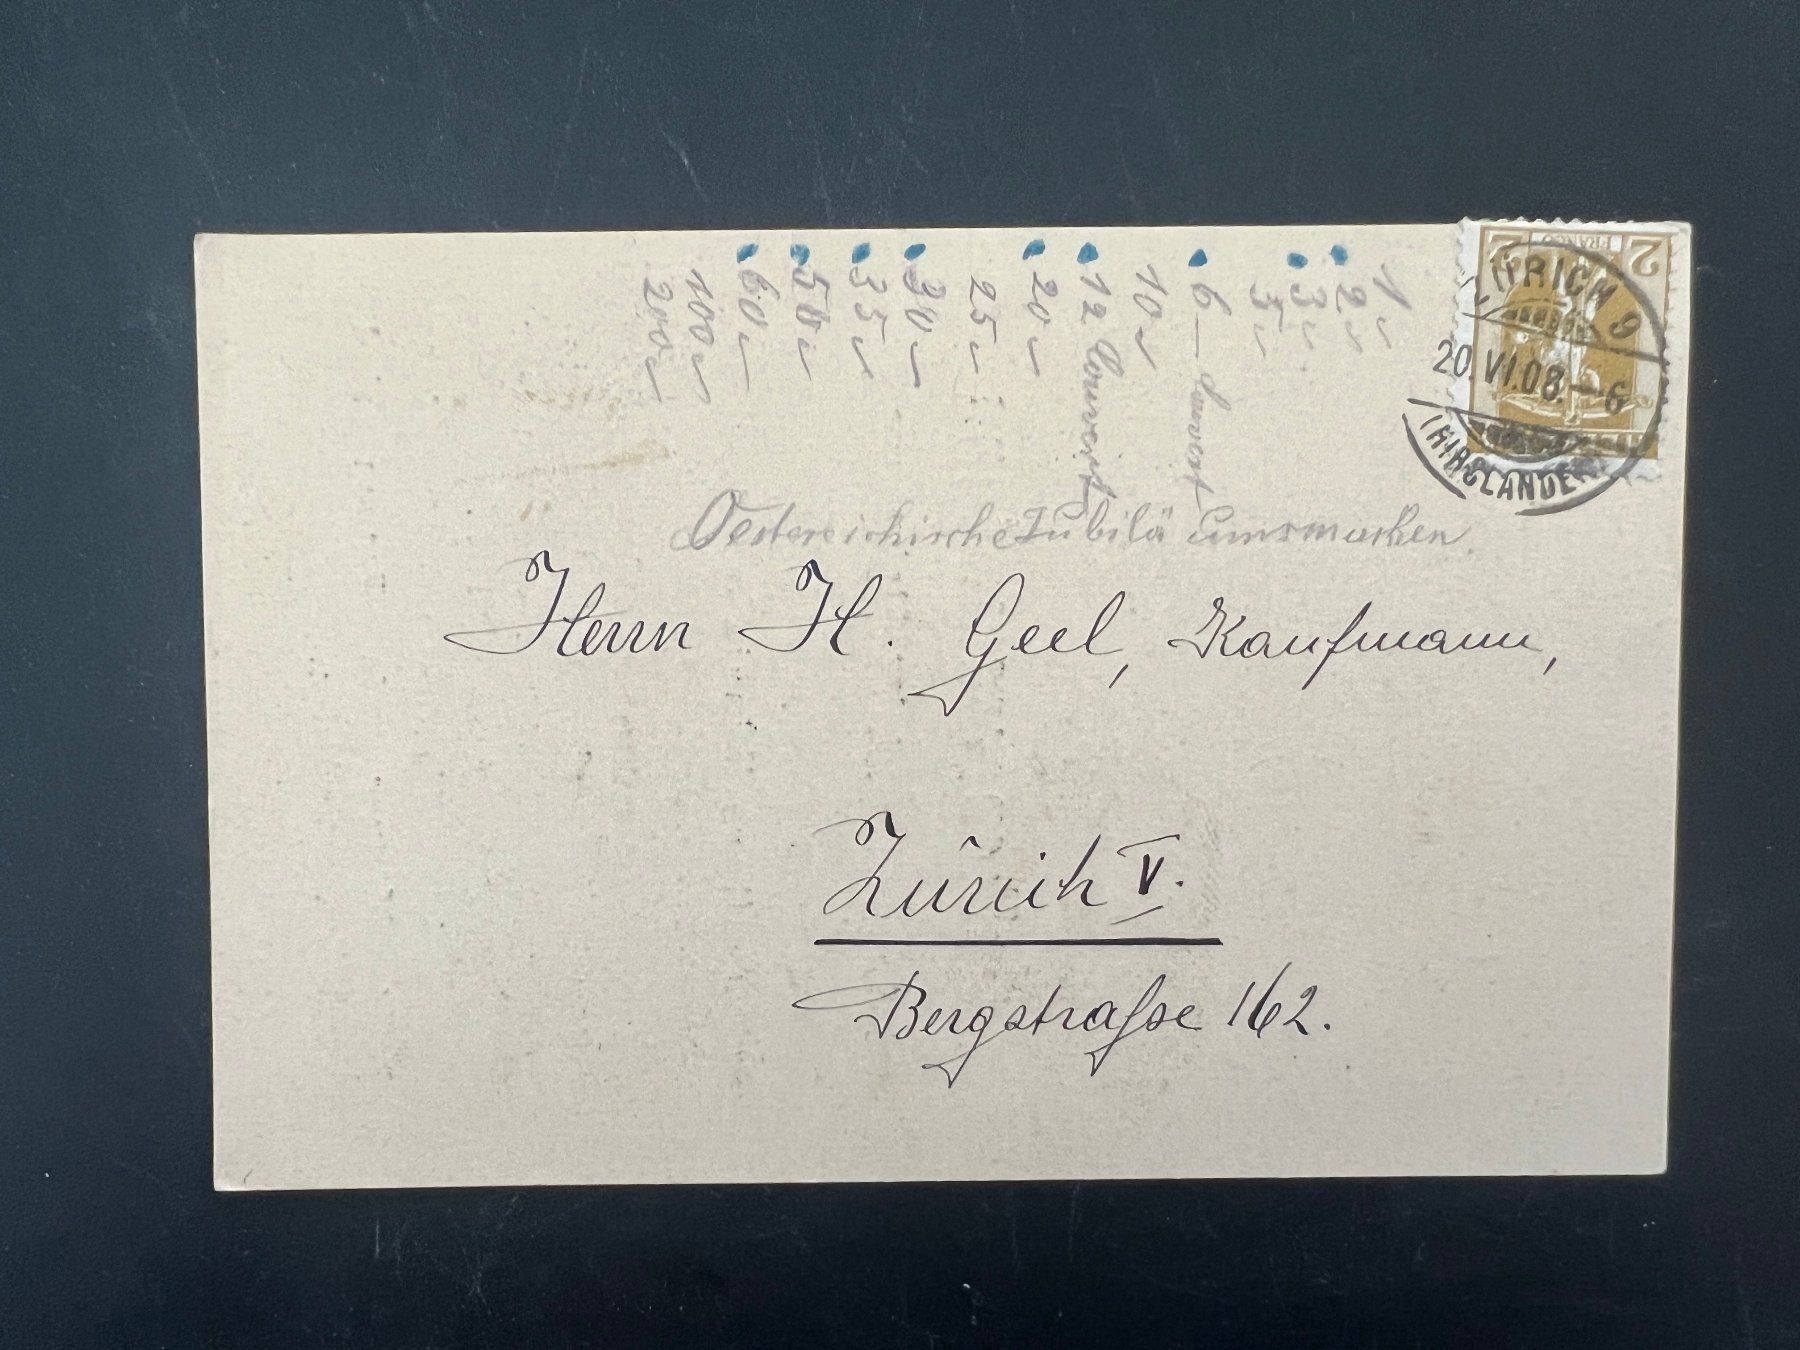 2 FRANCO 2
ZÜRICH 9
20.VI.08.–6
(HIRSLANDEN)
1 "
2 "
3 "
5 "
6 – Couvert
10 "
12 Couvert
20 "
25 "
30 "
35 "
50 "
60 "
100 "
200 "
Oestereichische Jubiläumsmarken.
Herrn H. Geel, Kaufmann,
Zürich V.
Bergstraße 162.